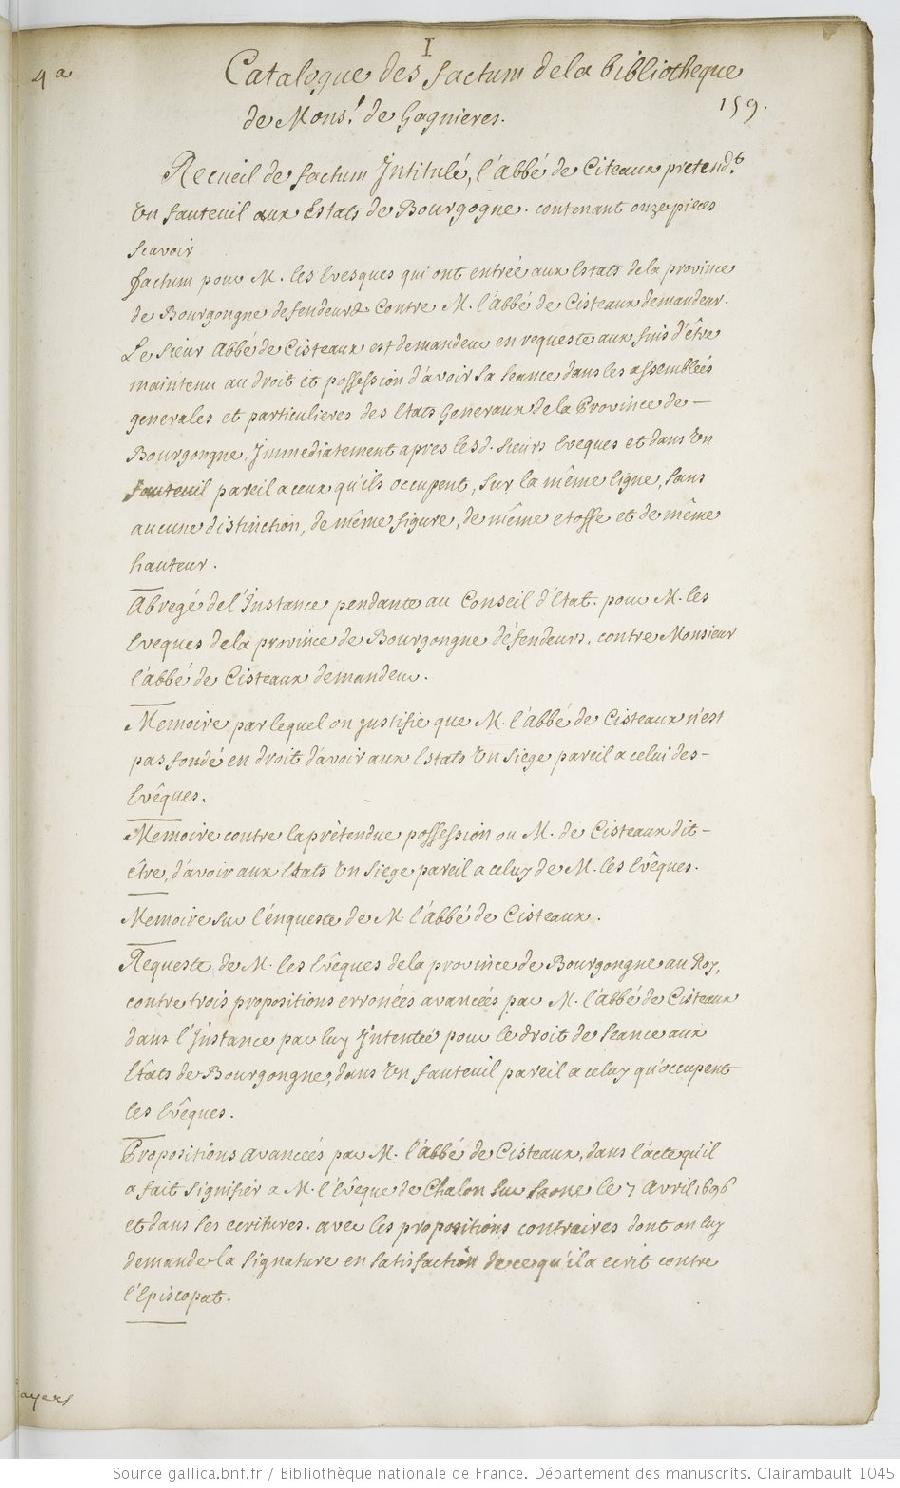 I
4 a
Catalogue des factum de la bibliotheque
159.
de Mons.r de Gagnieres.
Recueil de factum Jntitulé, l'abbé de Citeaux pretend.t
Un fauteuil aux Estats de Bourgogne. contenant onze pieces
scavoir
factum pour M. les Evesques qui ont entrée aux Estats de la province
de Bourgongne defendeurs Contre M. l'abbé de Cisteaux demandeur.
Le sieur Abbé de Cisteaux est demandeur en requeste aux fins d'être
maintenu au droit et possession d'avoir sa seance dans les assemblées
generales et particulieres des Etats Generaux de la Province de
Bourgongne, Jmmediatement apres lesd. sieurs Eveques et dans Un
fauteuil pareil a ceux qu'ils occupent, sur la même ligne, sans
aucune distinction, de même figure, de même etoffe et de même
hauteur.
Abregé de l'Jnstance pendante au Conseil d'Etat. pour M. les
Eveques de la province de Bourgongne défendeurs, contre Monsieur
l'abbé de Cisteaux demandeur.
Memoire par lequel on justifie que M. l'abbé de Cisteaux n'est
pas fondé en droit d'avoir aux Estats Un siege pareil a celui des
Evêques.
Memoire contre la prétendue possession ou M. de Cisteaux dit
être, d'avoir aux Etats Un siege pareil a celuy de M. les Evêques.
Memoire sur l'enqueste de M. l'abbé de Cisteaux.
Requeste de M. les Evêques de la province de Bourgongne au Roy,
contre trois propositions erronées avancées par M. l'abbé de Cisteaux
dans l'Jnstance par luy Jntentée pour le droit de seance aux
Etats de Bourgongne, dans Un fauteuil pareil a celuy qu'occupent
les Evêques.
Propositions avancées par M. l'abbé de Cisteaux, dans l'acte qu'il
a fait signifier a M. l'Evêque de Chalon sur saone le 7 Avril 1696
et dans ses ecritures. avec les propositions contraires dont on luy
demande la signature en satisfaction de ce qu'il a ecrit contre
l'Episcopat.
ayers
Source gallica.bnf.fr / Bibliothèque nationale de France. Département des manuscrits. Clairambault 1045